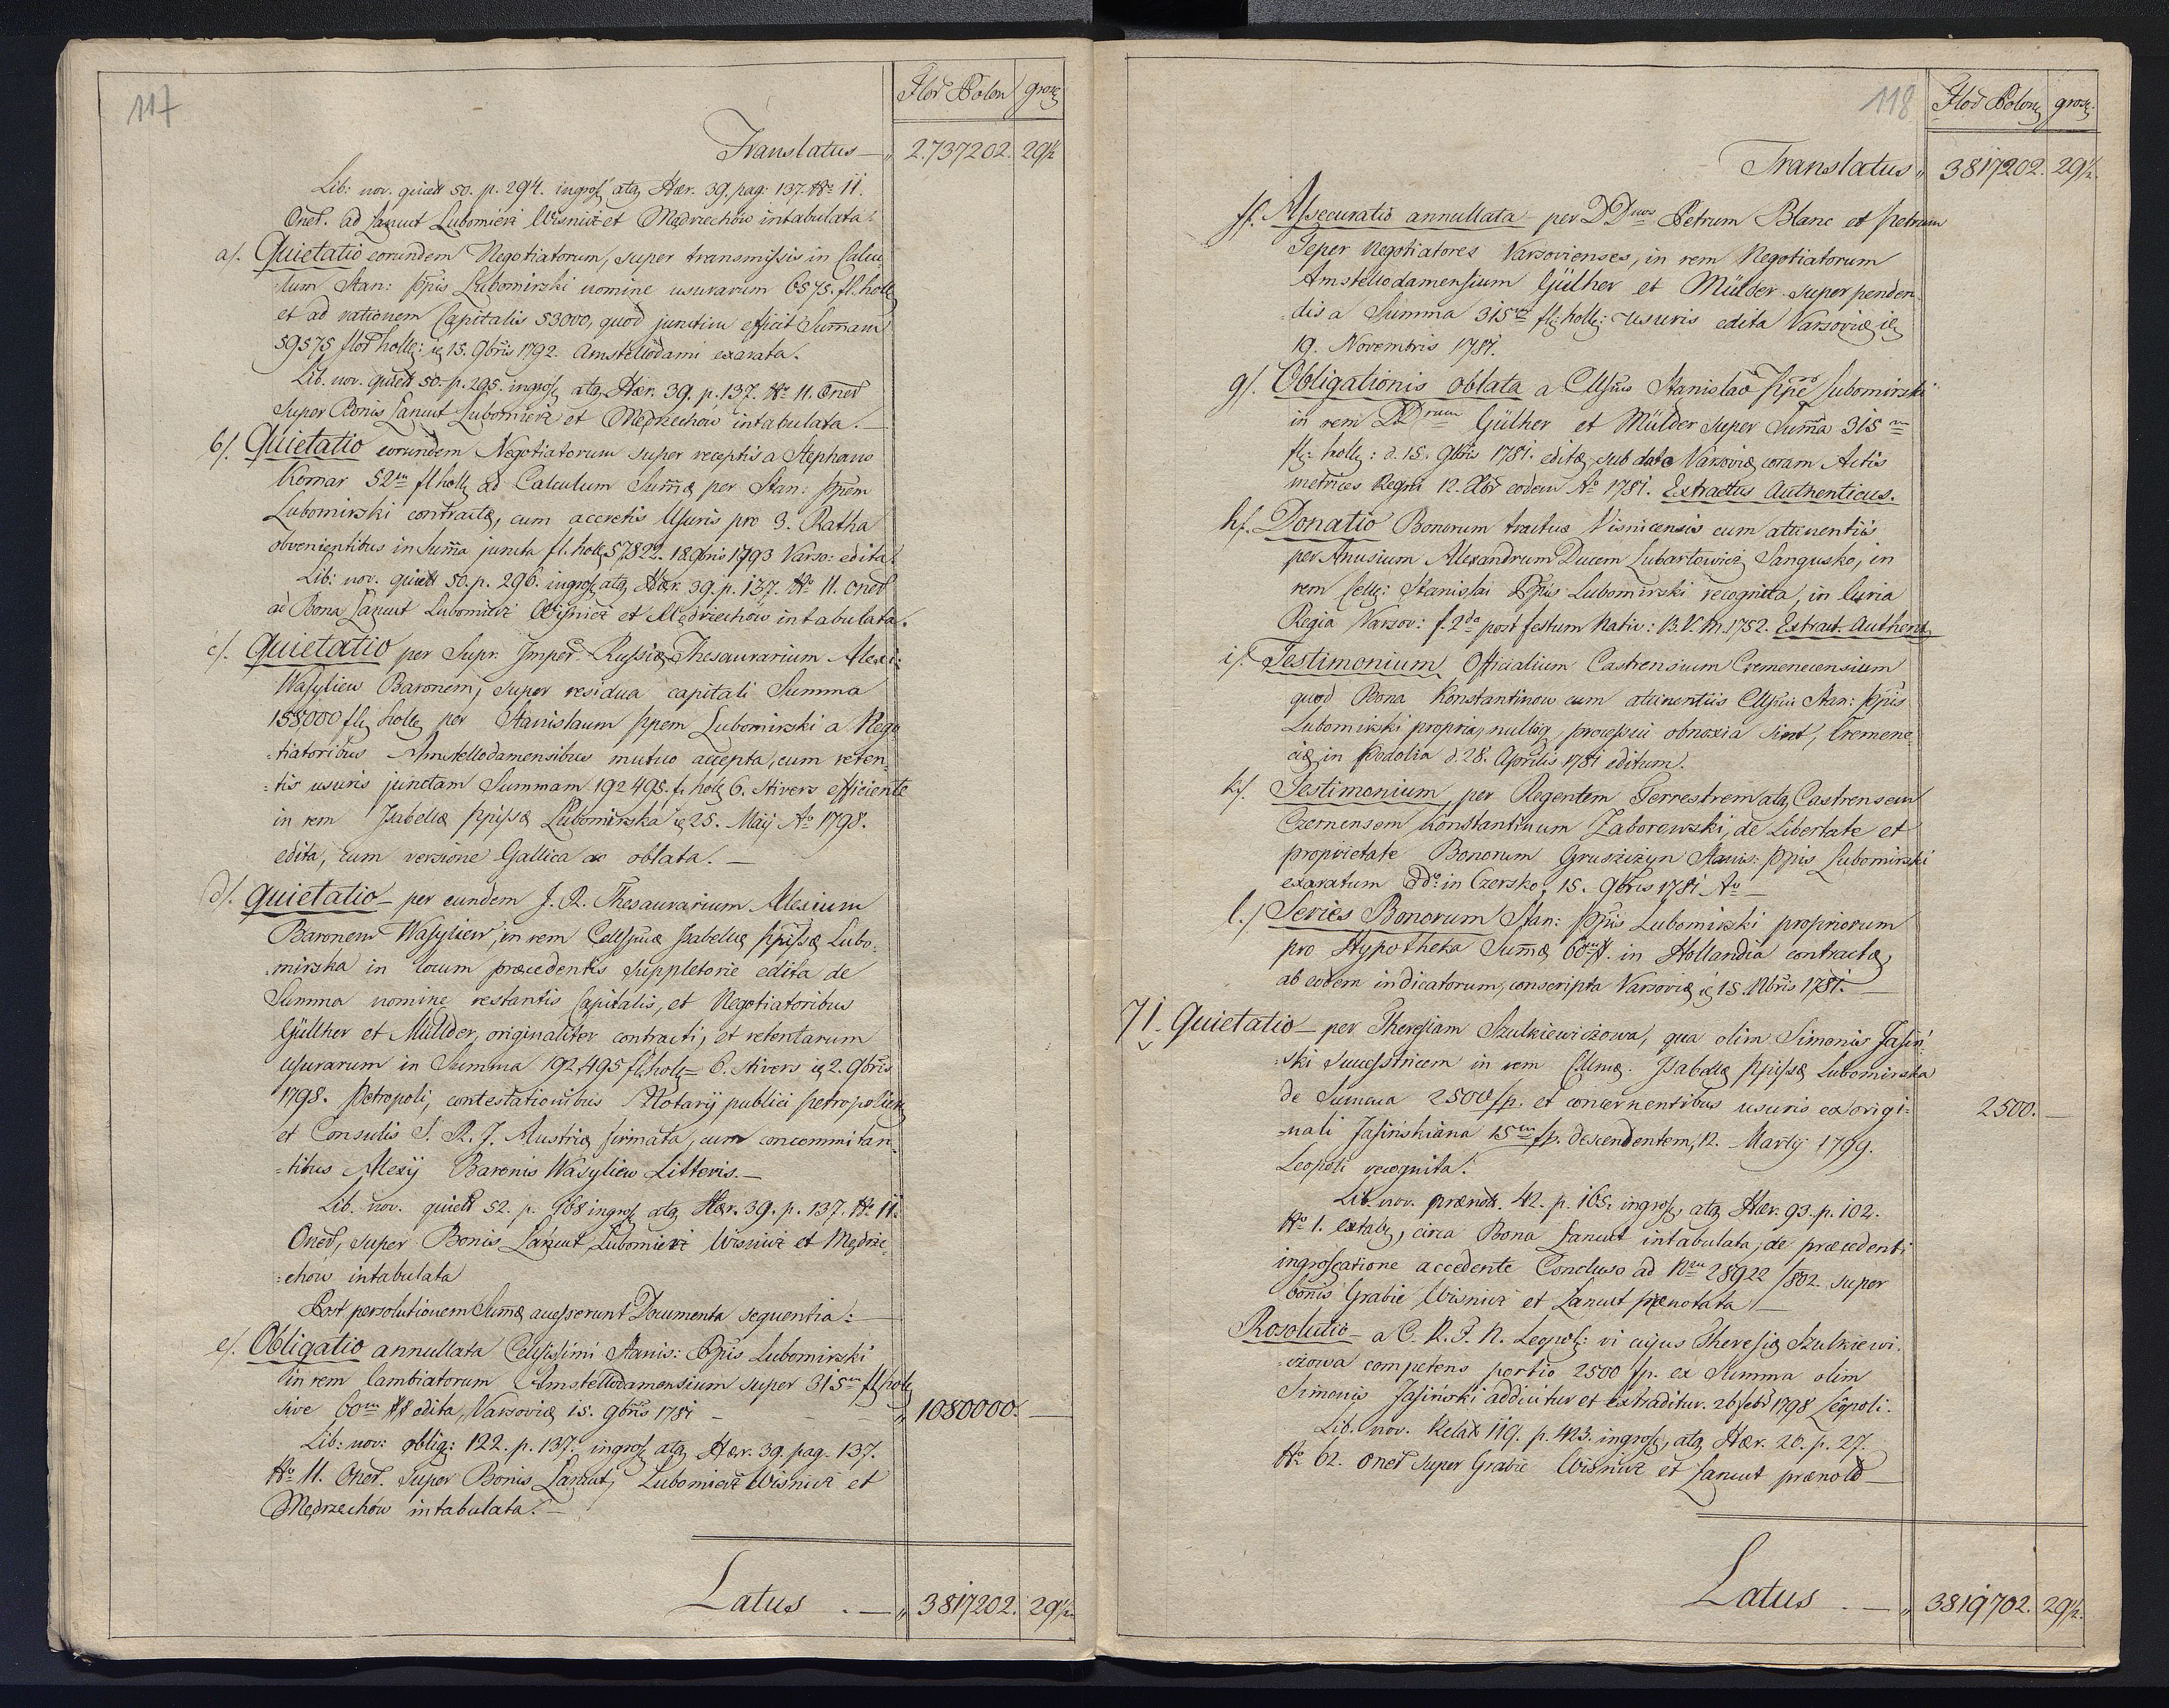 117
Flor Polon gros
Translatus — „ 2.737202. 29½
Lib: nov. quiett 50. p. 294. ingross atq Hær. 39. pag: 137. No 11.
Oner. ad Łancut Lubomierz Wisnicz et Mędrzechow intabulata.
a/. Quietatio eorundem Negotiatorum, super transmissis in Calcu
lum Stan: Ppis Lubomirski nomine usurarum 6575. fl. holl
et ad rationem Capitalis 53000, quod junctim efficit Summam
59575 flor holl: 15. 9bris 1792. Amstellodami exarata.
Lib. nov. quiett 50. p. 295. ingross atq Hær. 39. p. 137. No 11. Oner
super Bonis Łancut Lubomierz et Mędrzechow intabulata. —
b/. Quietatio eorundem Negotiatorum super receptis a Stephano
Komar 52m fl holl ad Calculum Summæ per Stan: Ppem
Lubomirski contractæ, cum accretis Usuris pro 3. Ratha
obvenientibus in Summa juncta fl. holl 57822. 18. 9bris 1793 Varso: edita.
Lib: nov. quiett 50. p. 296. ingross atq Hær. 39. p. 137. No 11. Oner
ad Bona Łancut Lubomierz Wisnicz et Mędrzechow intabulata.
c/. Quietatio per Supr. Imper. Russiæ Thesaurarium Alexi:
Wasyliew Baronem, super residua capitali Summa
155,000 fl holl per Stanislaum Ppem Lubomirski a Nego
-tiatoribus Amstellodamensibus mutuo accepta, cum reten-
-tis usuris junctam Summam 192495. fl holl 6. Stivers efficiente
in rem Isabellæ Ppissæ Lubomirska 25. Maij Ao 1798.
edita, cum versione Gallica ac oblata. —
d/. Quietatio — per eundem I. R. Thesaurarium Alexium
Baronem Wasyliew, in rem Celssmæ Isabellæ Ppissæ Lubo-
-mirska in locum præcedentis suppletorie edita de
Summa nomine restantis Capitalis, et Negotiatoribus
Güllher et Müllder, originaliter contracti, et retentarum
usurarum in Summa 192,495 fl. holl 6. Stivers 2. 9bris
1798. Petropoli, contestationibus Notarij publici Petropolien
et Consulis S. R. I. Austriæ firmata, cum concommitan-
-tibus Alexij Baronis Wasyliew Litteris. —
Lib. nov. quiett 52. p. 168 ingross atq Hær. 39. p. 137. No 11.
Oner, super Bonis Łancut, Lubomierz Wisnicz et Mędrze-
-chow intabulata
Post persolutionem Summæ accesserunt Documenta sequentia: —
e/. Obligatio annullata Celsissimi Stanis: Ppis Lubomirski
in rem Cambiatorum Amstellodamensium super 315m fl holl
sive 60m ## edita, Varsoviæ 15. 9bris 1781 — — — „ 1080000. —
Lib: nov: oblig: 122. p. 137. ingross atq Hær. 39. pag. 137.
No 11. Oner. super Bonis Łancut, Lubomierz Wisnicz et
Mędrzechow intabulata. —
Latus . — „ 3817202. 29½
118
Flor Polon gros.
Translatus „ 3817202. 29½.
ff. Assecuratio annullata per DDnos Petrum Blanc et Petrum
Teper Negotiatores Varsovienses, in rem Negotiatorum
Amstellodamensium Gülher et Mülder super penden-
-dis a Summa 315m fl: holl: usuris edita Varsoviæ
19. Novembris 1781.
g/. Obligationis oblata a Cellssmo Stanislao Ppe Lubomirski
in rem DDrum Gülher et Mülder super Summa 315m
fl: holl: d. 15. 9bris 1781. editæ, sub dato Varsoviæ coram Actis
metrices Regni 12. Xbr eodem Ao 1781. Extractus Authenticus.
h/. Donatio Bonorum tractus Visnicensis cum attinentiis
per Janusium Alexandrum Ducem Lubartowicz Sangusko, in
rem Cels: Stanislai Ppis Lubomirski recognita, in Curia
Regia Varsov: f. 2da post festum Nativ: B. V. M. 1752. Extract. Authent.
i/. Testimonium Officialium Castrensium Cremenecensium
quod Bona Konstantinow cum attinentiis Cellssmi Stan: Ppis
Lubomirski propria, nulliq processui obnoxia sint, Cremene-
ciæ in Podolia d. 28. Aprilis 1781 editum.
k/. Testimonium per Regentem Terrestrem atq Castrensem
Czernensem Konstantinum Zaborowski, de Libertate et
proprietate Bonorum Gruszczyn Stanis: Ppis Lubomirski
exaratum ddo in Czersko, 15. 9bris 1781 Ao —
l./ Series Bonorum Stan: Ppis Lubomirski propriorum
pro Hypotheka Summæ 60m #. in Hollandia contractæ,
ab eodem indicatorum, conscripta Varsoviæ 15. Nbris 1781. —
71. Quietatio — per Theresiam Szulkiewiczowa, qua olim Simonis Jasin-
-ski successtricem in rem Cellmæ. Isabellæ Ppissæ Lubomirska
de Summa 2500 fp. et concernentibus usuris ex origi- 2500. —
-nali Jasinskiana 15m fp. descendentem, 12. Martij 1799.
Leopoli recognita.
Lib. nov. prænot. 42. p. 165. ingross, atq Hær. 93. p. 102.
No 1. extab, circa Bona Łancut intabulata, de præcedenti
ingrossatione accedente Concluso ad Nrum 28922/802 super
bonis Grabie Wisnicz et Łancut prænotata —
Resolutio — a C. R. F. N. Leopol: vi cujus Theresiæ Szulkiewi-
-czowa competens portio 2500 fp. ex Summa olim
Simonis Jasinski addicitur et extraditur. 26 febr 1798 Leopoli.
Lib. nov. Relat 119. p. 423. ingross, atq Hær. 26. p. 27.
No 62. Oner super Grabie Wisnicz et Łancut prænot —
Latus . — „ 3819702. 29½.